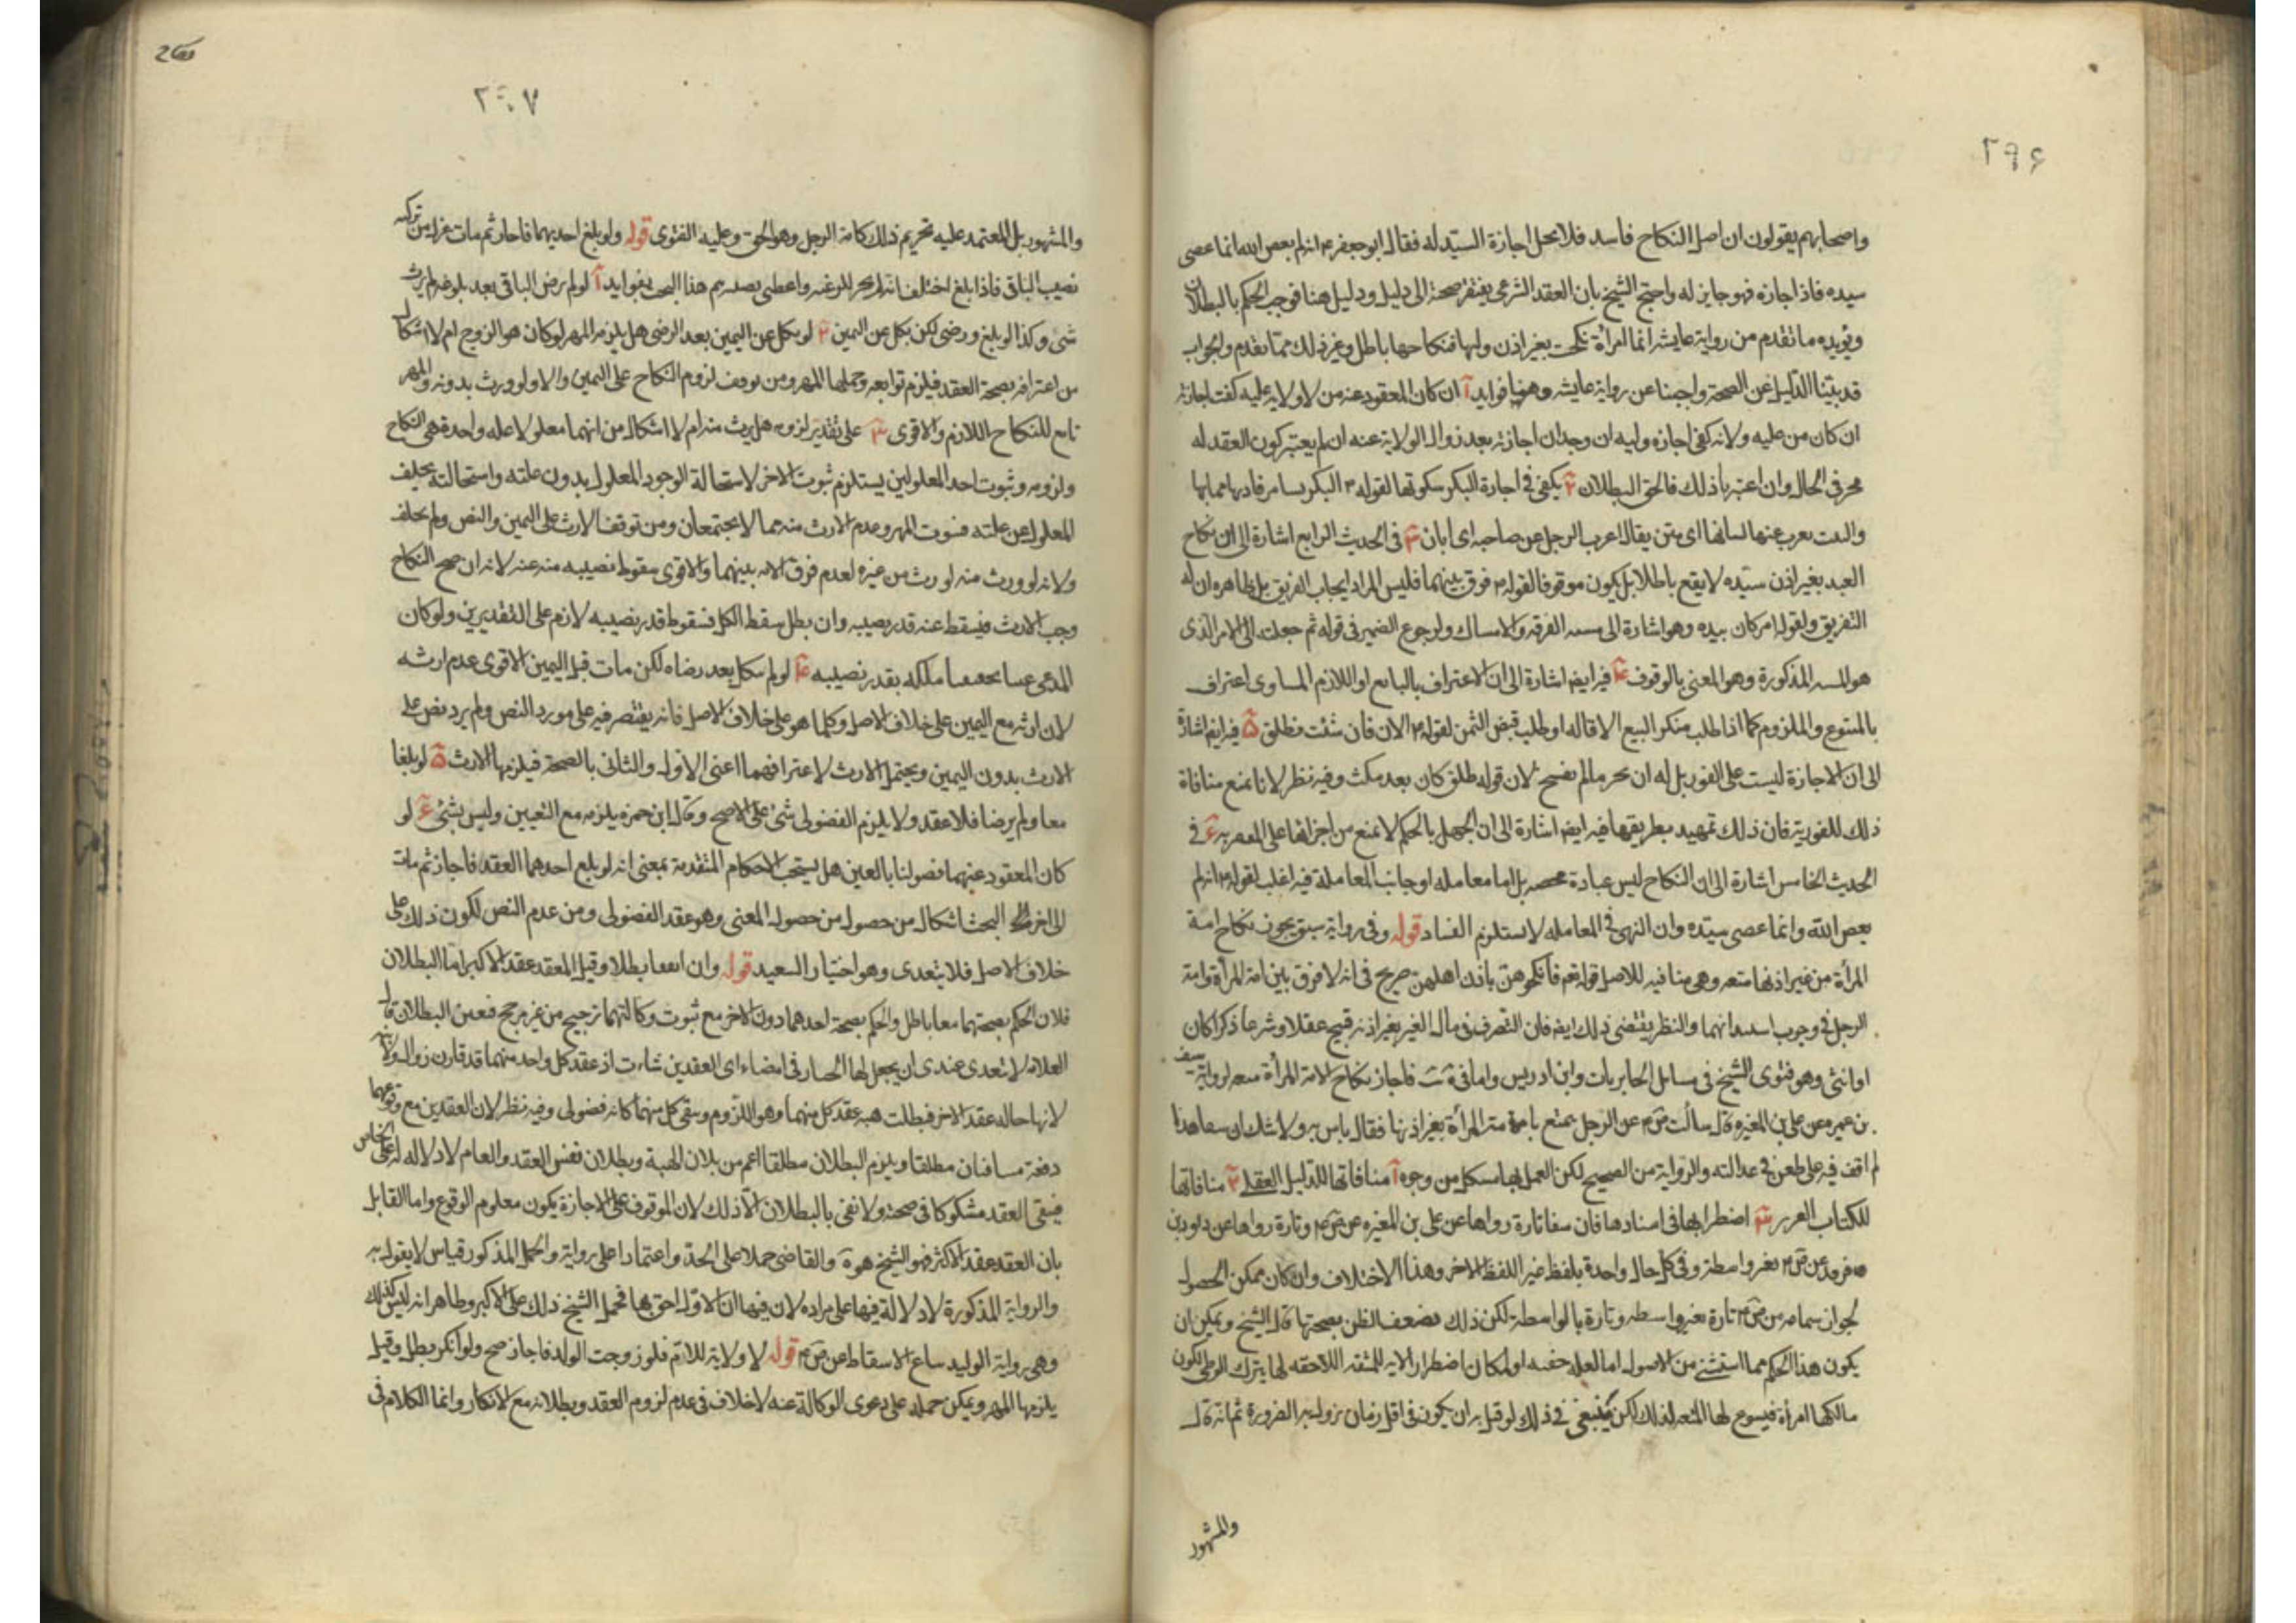 ٢٩۶
واصحابهم يقولون ان اصل النكاح فاسد فلا يحل اجازة السيد له فقال ابو جعفر ع انه لم يعص الله انما عصى
سيده فاذا اجازه فهو جايز له واحتج الشيخ بان العقد الشرعى يفتقر صحته الى دليل ودليل هنا فوجب الحكم بالبطلان
ويؤيده ما تقدم من رواية عايشه ايما امرأة نكحت بغير اذن وليها فنكاحها باطل وغير ذلك مما تقدم والجواب
قد بينا الدليل عن الصحة واجبنا عن رواية عايشه وهنا فوايد آ ان كان المعقود عنه من لا ولاية عليه كفت اجازته
ان كان من عليه ولاية كفى اجازه وليه ان وجد ان اجازته بعد زوال الولاية عنه ان لم يعتبر كون العقد له
مجز فى الحال وان اعتبرنا ذلك فالحق البطلان ٢ يكفى فى اجازة البكر سكوتها لقوله ع البكر
عنها لسانها اى يقال اعرب الرجل عن صاحبه اى ابان ٣ فى الحديث الرابع اشارة الى ان نكاح
العبد بغير اذن سيده لا يقع باطلا بل يكون موقوفا لقوله ع فرق بينهما فليس المراد ايجاب الفريق بل ظاهره ان له
التفريق ولقوله امر كان بيده وهو اشارة الى الفرقه والامساك ولرجوع الضمير فى قوله ثم جعلت الى الامر الذى
هو المذكورة وهو المعنى بالوقوف ۴ فيه ايضا اشارة الى ان الاعتراف او اللازم المساوى اعتراف
بالمتبوع والملزوم كما اذا طلب منكر البيع الاقاله او طلب قبض الثمن لقوله ع الان فان شئت فطلق ۵ فيه ايضا اشارة
الى ان الاجازة ليست على الفور بل له ان يجيز مالم يفسخ لان قوله طلق كان بعد مكث وفيه نظر لانا نمنع منافاة
ذلك للفورية فان ذلك تمهيد بطريقها فيه ايضا اشارة الى ان الجهل بالحكم لا يمنع من اجرائها على ۶ فى
الحديث الخامس اشارة الى ان النكاح ليس عبادة محضه بل اما معامله او جانب المعاملة فيه اغلب لقوله ع انه لم
يعص الله وانما عصى سيده وان النهى فى المعامله لا يستلزم الفساد قوله وفى رواية سيف يجوز نكاح امة
المرأة من غير اذنها متعه وهى منافيه للاصل قوله تعم فانكحوهن باذن اهلهن صريح فى انه لا فرق بين امة المرأة وامة
الرجل فى وجوب والنظر يقتضى ذلك ايضا فان التصرف فى مال الغير بغير اذنه قبيح عقلا وشرعا ذكرا كان
او انثى وهو فتوى الشيخ فى مسايل الحايريات وابن ادريس واما فى فاجاز نكاح الامة المرأة متعه لرواية سيف
بن عميره عن على بن المغيره قال سألت ص ع عن الرجل يتمتع بامة امرأة بغير اذنها فقال لا باس به ولا شك ان
لم اقف فيه على طعن فى عدالته والرواية من الصحيح لكن العمل بها مشكل من وجوه آ منافاتها للدليل العقلى ٢ منافاتها
للكتاب العزيز ٣ اضطرابها فى اسنادها فان سفا تارة رواها عن على بن المغيره عن ص ع وتارة رواها عن داود بن
فرقد عن ص ع بغير واسطة وفى كل حال واحدة بلفظ غير اللفظ الاخر وهذا الاختلاف وان كان ممكن الحصول
لجواز سماعه من ص ع تارة بغير واسطه وتارة بالواسطة لكن ذلك يضعف الظن بصحتها قال الشيخ ويمكن ان
يكون هذا الحكم مما استثنى من الاصول اما لعلة خفيه او لمكان اضطرار الامة للمشقة اللاحقه لها بترك الوطى لكون
مالكها امرأة فيسوغ لها المتعه لذلك لكن ينبغى فى ذلك لو قيل به ان يكون فى اقل زمان يزول به الضرورة ثم انه قال
والمشهور
٢٠٧
والمشهور بل المعتمد عليه تحريم ذلك كامة الرجل وهو الحق وعليه الفتوى قوله ولو بلغ احديهما فاجاز ثم مات عزل من تركته
نصيب الباقى فاذا بلغ احلف انه لم يجز للرغبه واعطى نصيبه تم هذا البحث بفوايد آ لو لم يرض الباقى بعد بلوغه لم يرث
شئ وكذا لو بلغ ورضى لكن نكل عن اليمين ٢ لو نكل عن اليمين بعد الرضى هل يلزمه المهر لو كان هو الزوج ام لا اشكال
من اعترافه بصحة العقد فيلزم توابعه وجملها المهر ومن توقف لزوم النكاح على اليمين والا ولو ورث بدونه والمهر
تابع للنكاح اللازم والاقوى ٣ على تقدير لزومه هل يرث منه ام لا اشكال من انهما معلولا علة واحدة وهى النكاح
ولزومه وثبوت احد المعلولين يستلزم ثبوت الاخر لاستحالة الوجود المعلول بدون علته واستحالته تخلف
المعلول عن علته فثبوت المهر وعدم الارث منه مما لا يجتمعان ومن توقف الارث على اليمين والنص ولم يحلف
ولانه لو ورث منه لورث من غيره لعدم فرق الامة بينهما والاقوى سقوط نصيبه منه عنه لانه ان صح النكاح
وجب الارث فيسقط عنه قدر نصيبه وان بطل سقط الكل فسقوط قدر نصيبه لازم على التقديرين ولو كان
المدعى ملكه بقدر نصيبه ۴ لو لم ينكل بعد رضاه لكن مات قبل اليمين الاقوى عدم ارثه
لان ارثه مع اليمين على خلاف الاصل وكلما هو على خلاف الاصل فانه يقتصر فيه على مورد النص ولم يرد نص على
الارث بدون اليمين ويحتمل الارث لاعترافهما اعنى الاول والثانى بالصحة فيلزمها الارث ۵ لو بلغا
معا ولم يرضا فلا عقد ولا يلزم الفضولى شئ على الاصح وقال ابن حمزه يلزمه مع التعيين وليس بشئ ۶ لو
كان المعقود عنهما فضولنا بالغين هل يستحب الاحكام المتقدمة بمعنى انه لو بلغ احدهما العقد فاجاز ثم مات
الى اخر البحث اشكال من حصول من حصوله المعنى وهو عقد الفضولى ومن عدم النص لكون ذلك على
خلاف الاصل فلا يتعدى وهو اختيار السعيد قوله وان اتفقا بطلا وقيل العقد عقد الاكبر اما البطلان
فلان الحكم بصحتهما معا باطل والحكم بصحة احدهما دون الاخر مع ثبوت وكالتهما ترجيح من غير مرجح فتعين البطلان قال
العلامه لا تعدى عندى ان يجعل لها الخيار فى امضاء اى العقدين شاءت اذ عقد كل واحد منهما قد قارن زوال ولايته
لانها حاله عقد الاخر فبطلت هبه عقد كل منهما وهو اللزوم وبقى كل منهما كانه فضولى وفيه نظر لان العقدين مع وقوعهما
دفعة متنافيان مطلقا ويلزم البطلان مطلقا اعم من بطلان الهبة وبطلان نفس العقد والعام لا دلاله له على الخاص
فيبقى العقد مشكوكا فى صحته ولا نفى بالبطلان الا ذلك لان الموقوف على الاجازة يكون معلوم الوقوع واما القايل
بان العقد عقد الاكثر فهو الشيخ والقاضى حملا على الجد واعتمادا على رواية والحمل المذكور قياس لا يقول به
والرواية المذكورة لا دلالة فيها على مراده لان فيها ان الاول احق بها فحمل الشيخ ذلك على الاكبر وظاهرا انه ليس كذلك
وهى رواية الوليد بياع الاسقاط عن ص ع قوله لا ولاية للام فلو زوجت الولد فاجاز صح ولو انكر بطل وقيل
يلزمها المهر ويمكن حمله على دعوى الوكالة عنه لا خلاف فى عدم لزوم العقد وبطلانه مع الانكار وانما الكلام فى